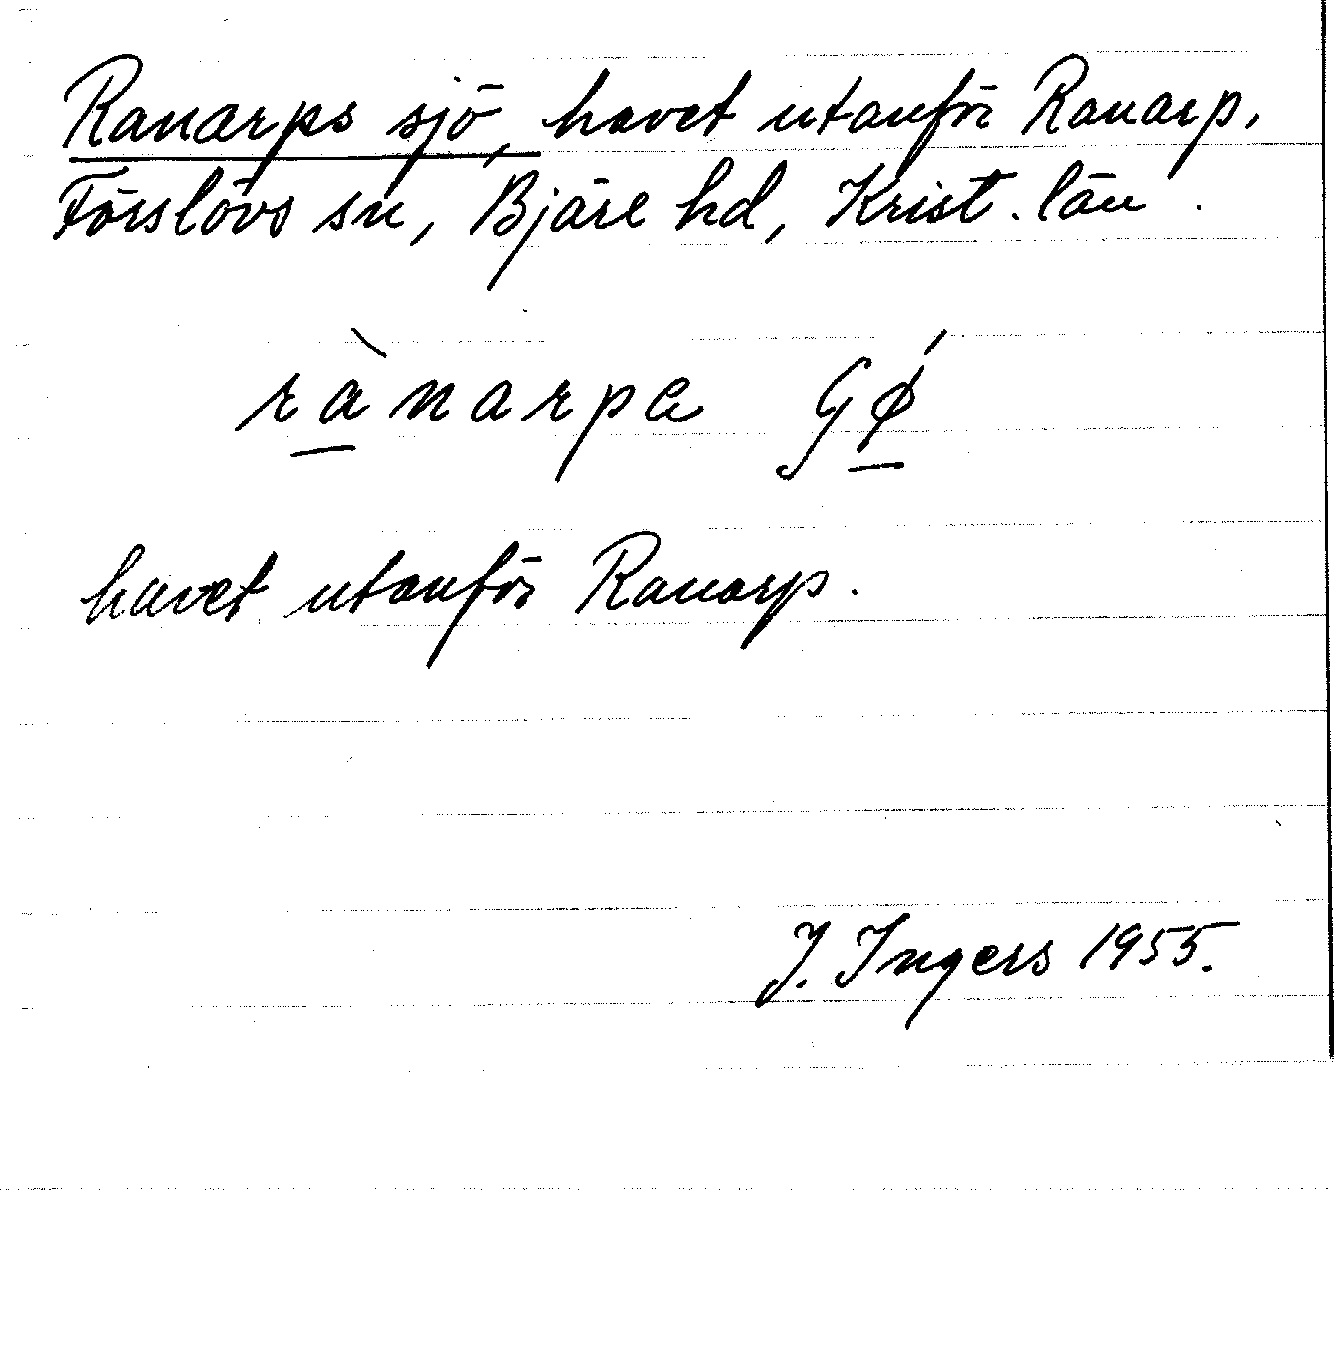 Ranarps sjö, havet utanför Ranarp,
Förslövs sn, Bjäre hd, Krist. län.
rànarpa
havet utanför Ranarp.
J. Ingers 1955.